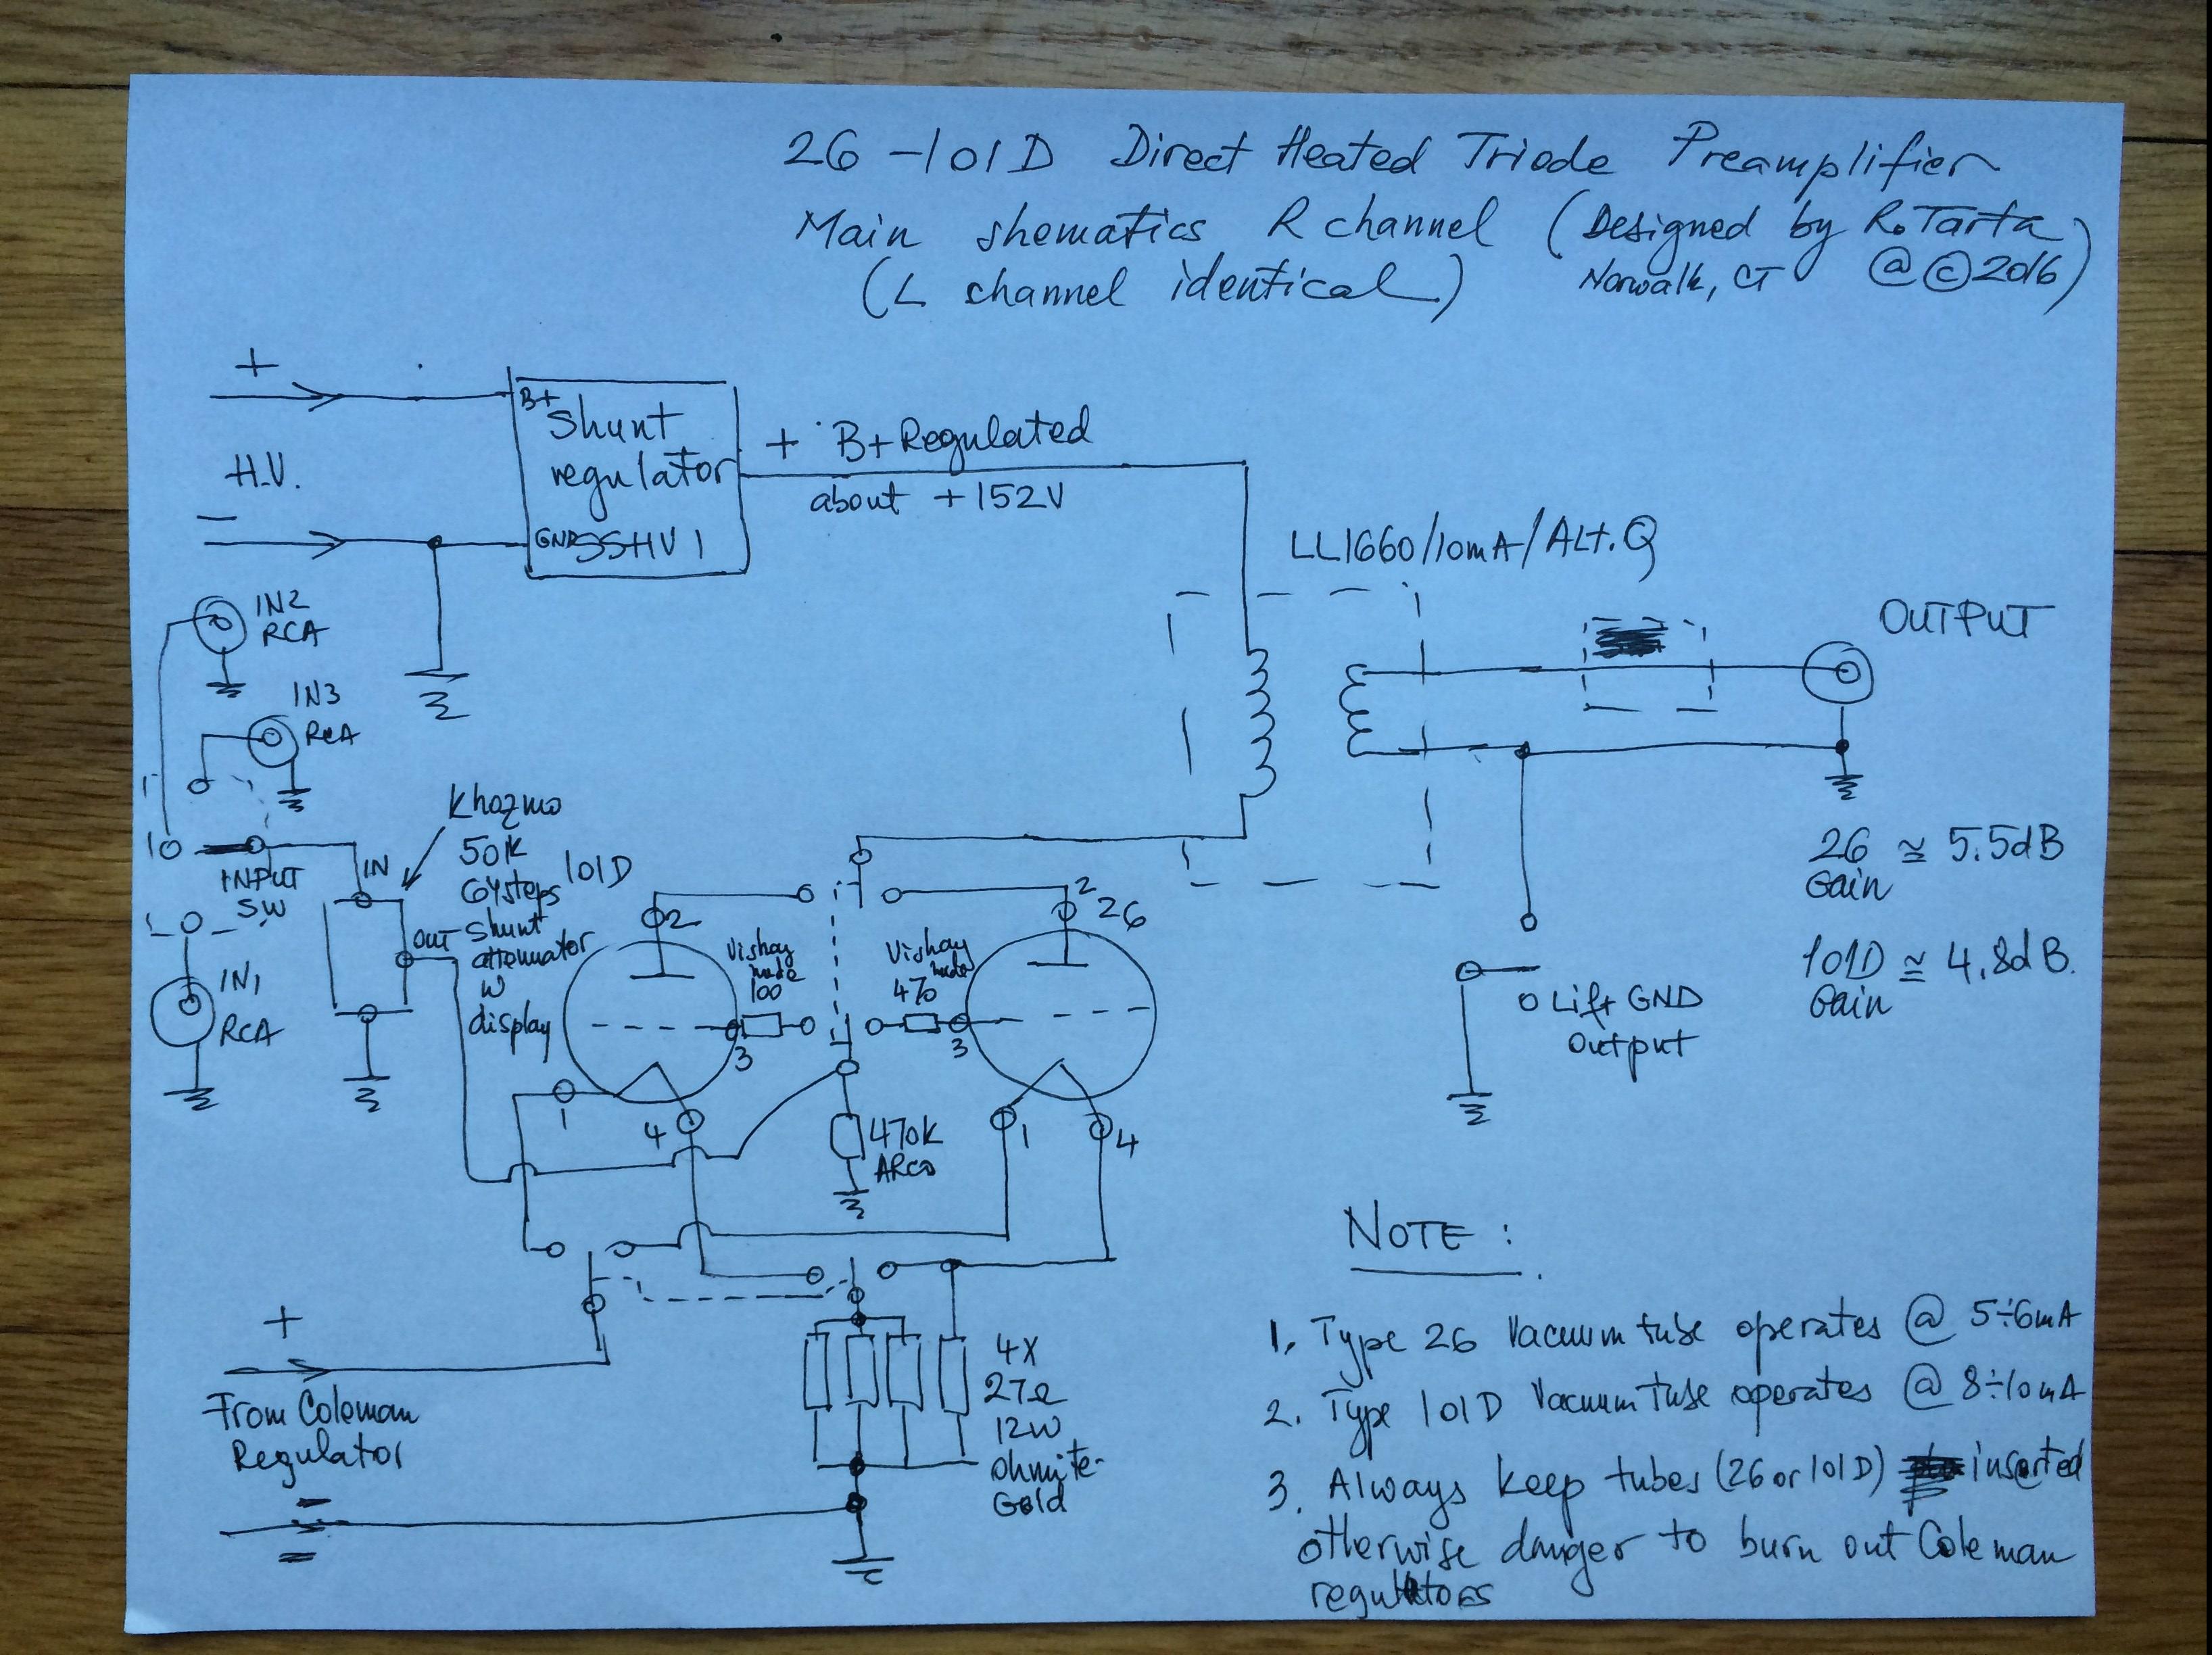 26-101D Direct Heated Triode Preamplifier
Main shematics R channel (Designed by R. Tarta
(L channel identical) Norwalk, CT @©2016)
+
B+
Shunt
regulator
GND SSHV1
+ B+ Regulated
about +152V
H.V.
−
LL1660/10mA/ALT.Q
OUTPUT
IN2
RCA
IN3
RCA
INPUT
SW
IN1
RCA
IN
OUT
Khozmo
50K
64steps
shunt
attenuator
W
display
101D
2
3
1
4
Vishay
nude
100
Vishay
nude
470
2
26
3
1
4
470K
ARCO
Lift GND
Output
26 ≅ 5.5dB
Gain
101D ≅ 4.8dB.
Gain
+
From Coleman
Regulator
4X
27Ω
12W
ohmite
Gold
NOTE :
1. Type 26 Vacuum tube operates @ 5÷6mA
2. Type 101D Vacuum tube operates @ 8÷10mA
3. Always keep tubes (26 or 101D) inserted
otherwise danger to burn out Coleman
regulators